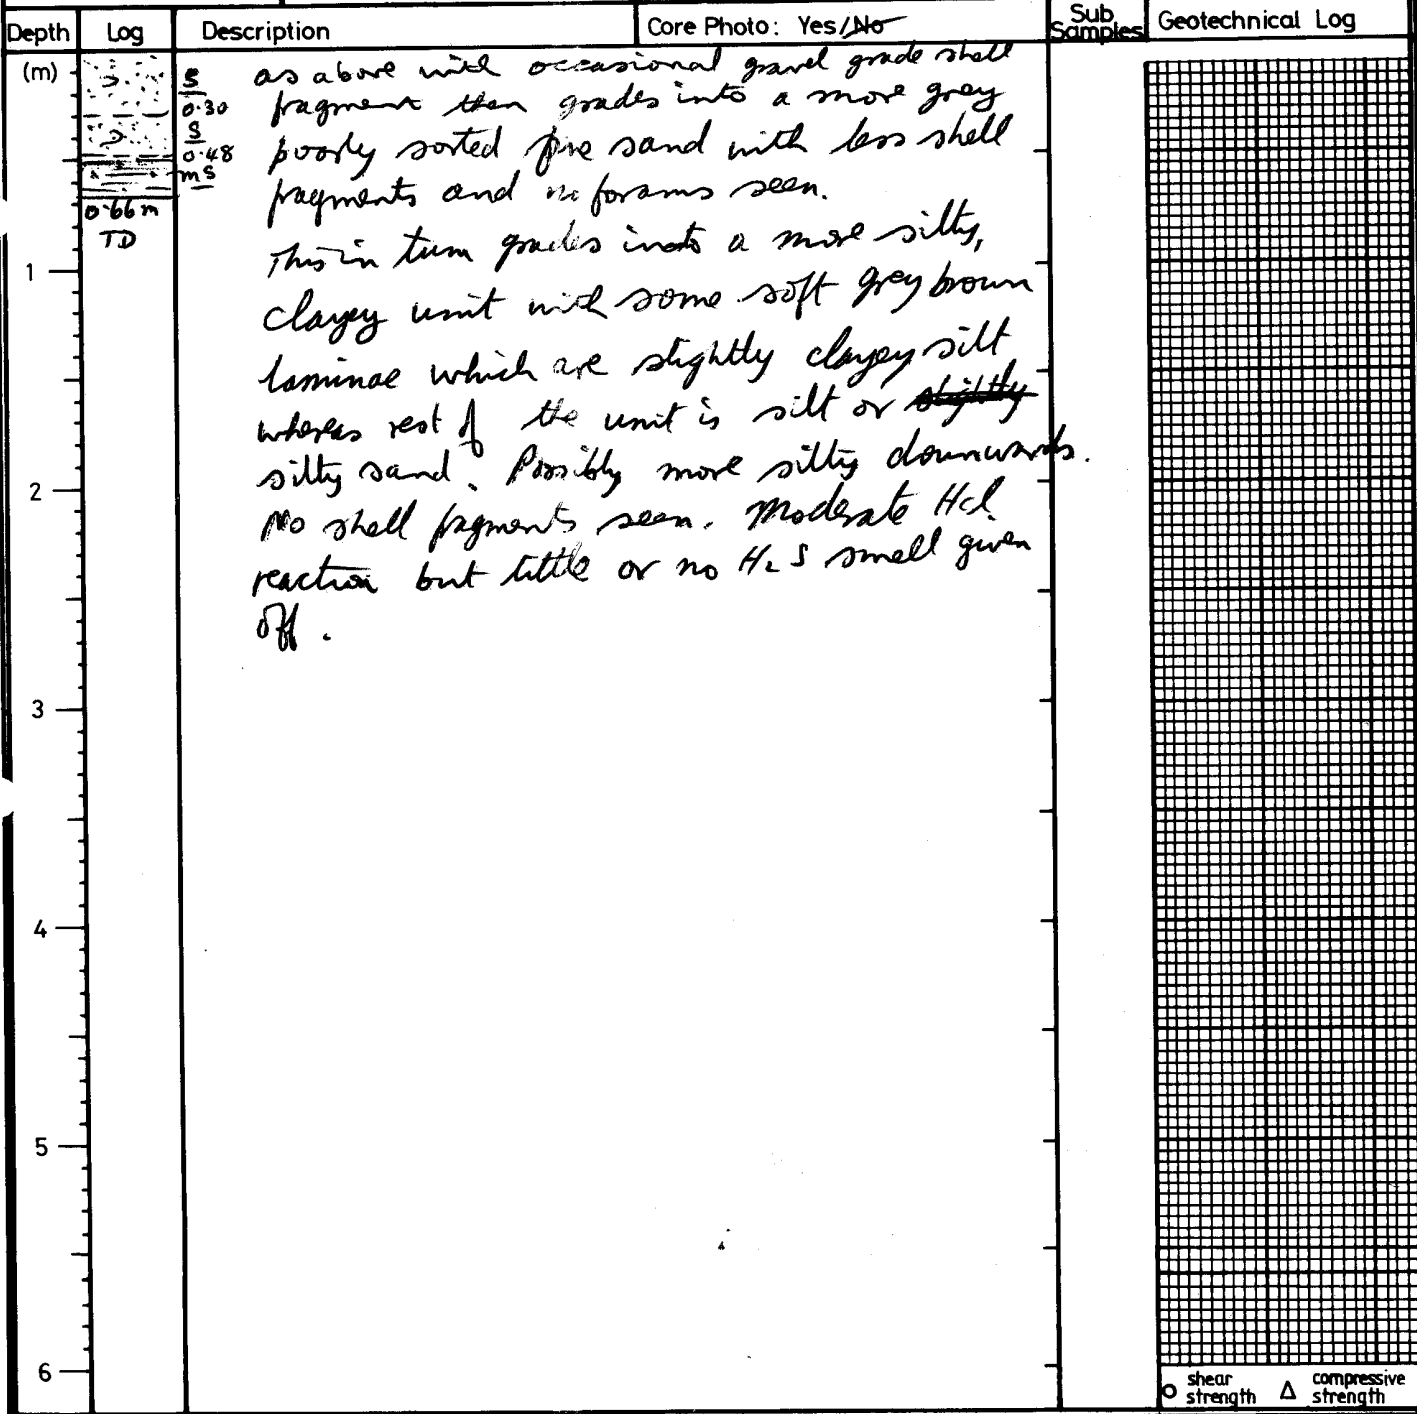 Depth Log Description Core Photo: Yes/No Sub Samples Geotechnical Log
(m)
S
0.30
S
0.48
mS
0.66m
TD
as above with occasional gravel grade shell
fragment then grades into a more grey
poorly sorted fine sand with less shell
fragments and no forams seen.
This in turn grades into a more silty,
clayey unit with some soft grey brown
laminae which are slightly clayey silt
whereas rest of the unit is silt or slightly
silty sand. Possibly more silty downwards.
No shell fragments seen. Moderate Hcl
reaction but little or no H2S smell given
off.
1
2
3
4
5
6
o shear strength Δ compressive strength